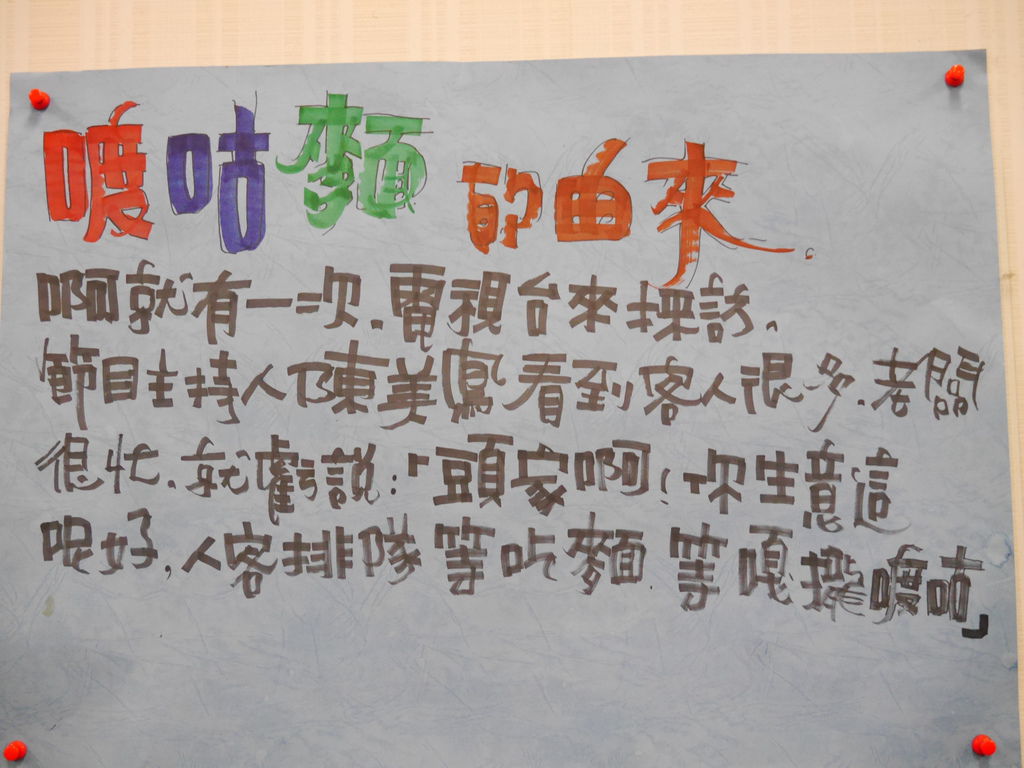 嚝咕麵的由來。
啊就有一次,電視台來採訪、
節目主持人陳美鳳看到客人很多、老闆
很忙、就虧說:「頭家啊!你生意這
呢好,人客排隊等吃麵.等嘎攏嚝咕」